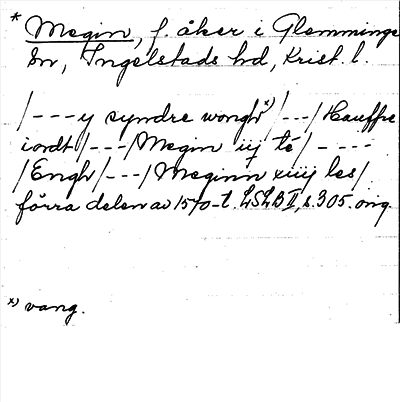 * Megin, f. åker i Glemminge
sn, Ingelstads hd, Krist. l.
/---y syndre wongh*)/--/Hauffre
iordt/---/Megin iij té/----
/Engh/---/Meginn xiiij les/
förra delen av 1570-t. LSLB II, s. 305. orig.
*) vang.